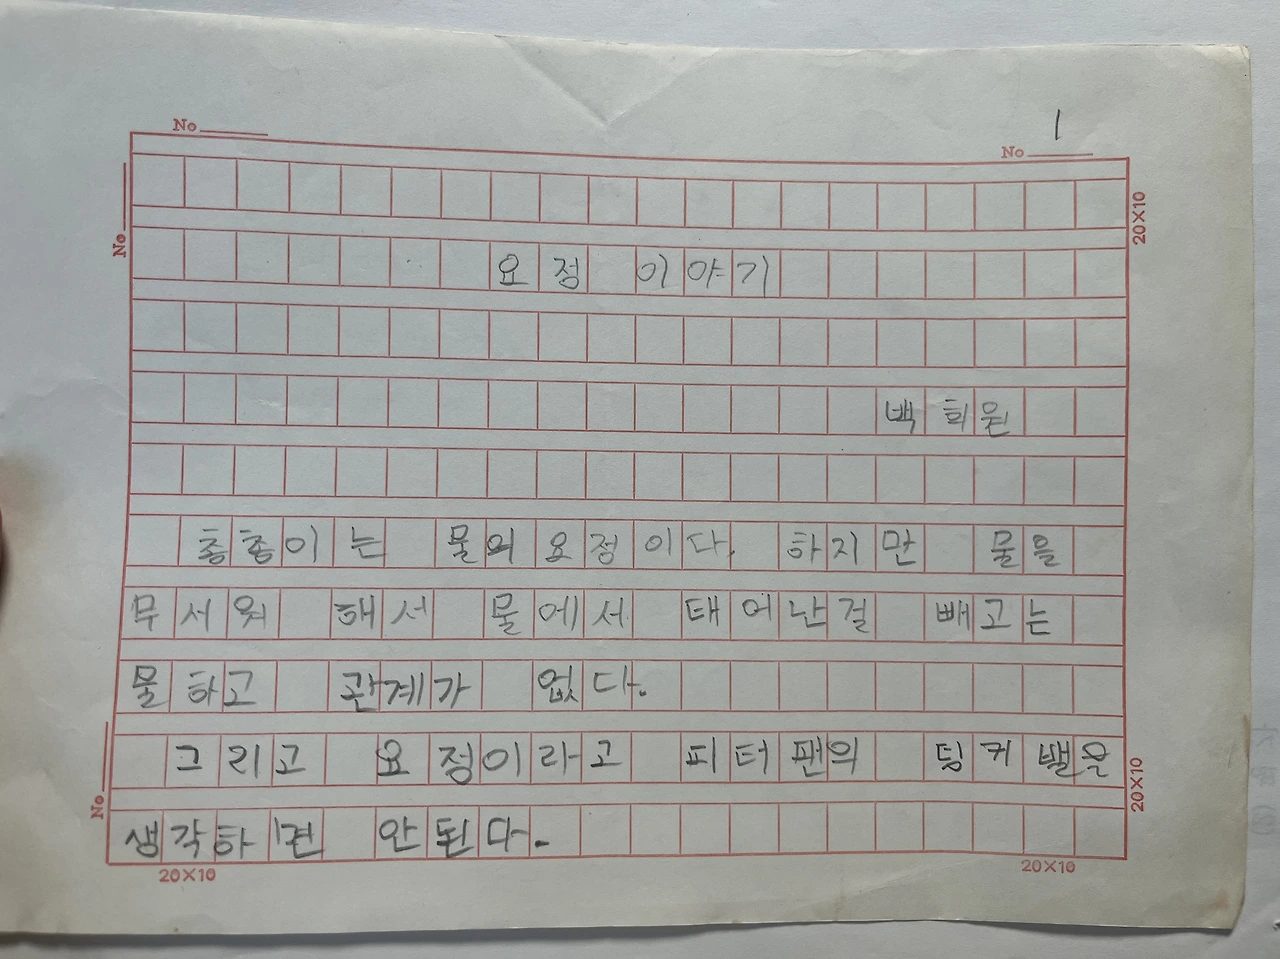 No
1
No
No
20×10
요정 이야기
백희원
총총이는 물의 요정이다. 하지만 물을
무서워 해서 물에서 태어난걸 빼고는
물하고 관계가 없다.
그리고 요정이라고 피터팬의 팅커밸을
생각하면 안된다.
No
20×10
20×10
20×10